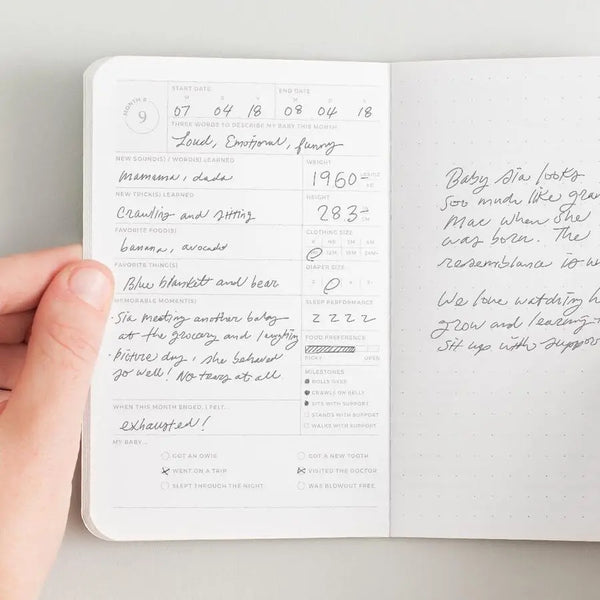 START DATE END DATE
MONTH #
9
07 04 18 08 04 18
THREE WORDS TO DESCRIBE MY BABY THIS MONTH
Loud, Emotional, funny
NEW SOUND(S) / WORD(S) LEARNED
mamama, dada
WEIGHT
NEW TRICK(S) LEARNED
Crawling and sitting
HEIGHT
FAVORITE FOOD(S)
banana, avocado
CLOTHING SIZE
FAVORITE THING(S)
Blue blankett and bear
DIAPER SIZE
MEMORABLE MOMENT(S)
· Sia meeting another baby
at the grocery and laughing
· Picture day, she behaved
so well! No tears at all
SLEEP PERFORMANCE
Z Z Z Z
FOOD PREFERENCE
PICKY OPEN
MILESTONES
ROLLS OVER
CRAWLS ON BELLY
SITS WITH SUPPORT
STANDS WITH SUPPORT
WALKS WITH SUPPORT
WHEN THIS MONTH ENDED, I FELT...
exhausted!
MY BABY...
GOT AN OWIE GOT A NEW TOOTH
WENT ON A TRIP VISITED THE DOCTOR
SLEPT THROUGH THE NIGHT WAS BLOWOUT FREE
Baby Sia looks
soo much like
Mac when she
was born. The
resemblance is
We love watching
grow and learning
sit ups with